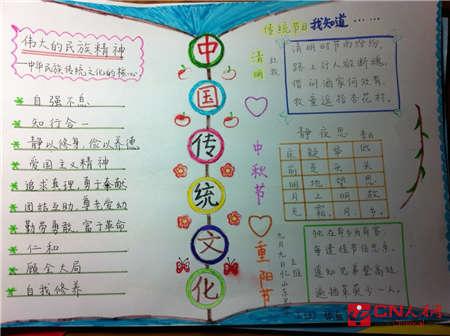 伟大的民族精神
—中华民族传统文化的核心
自强不息
知行合一
静以修身,俭以养德
爱国主义精神
追求真理,勇于奉献
团结互助,尊老爱幼
勤劳勇敢,富于革命
仁和
顾全大局
自我修养
中国传统文化
传统节日我知道……
清明
杜牧
清明时节雨纷纷,
路上行人欲断魂。
借问酒家何处有,
牧童遥指杏花村。
中秋节
静夜思
床疑举低
前是头头
明地望思
月上明故
光,霜。月,乡。
重阳节
九月九日忆山东兄弟
王维
独在异乡为异客,
每逢佳节倍思亲。
遥知兄弟登高处,
遍插茱萸少一人。
CN人网